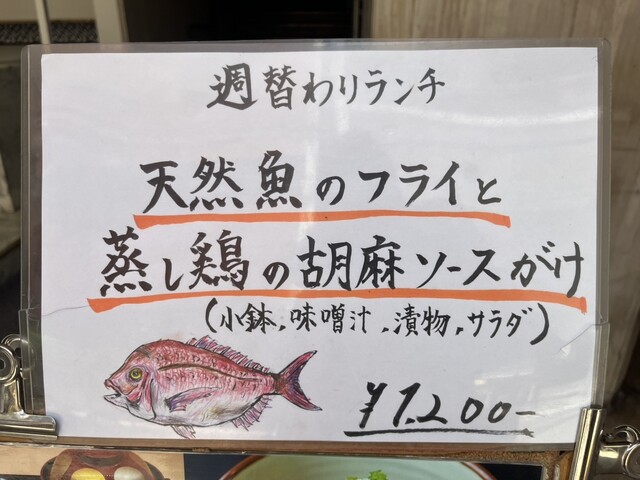 週替わりランチ
天然魚のフライと
蒸し鶏の胡麻ソースがけ
(小鉢,味噌汁,漬物,サラダ)
¥1,200-